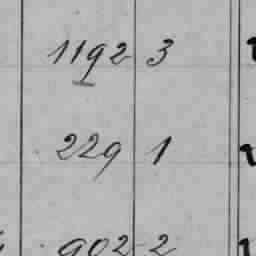 1192 3
229 1
902 2